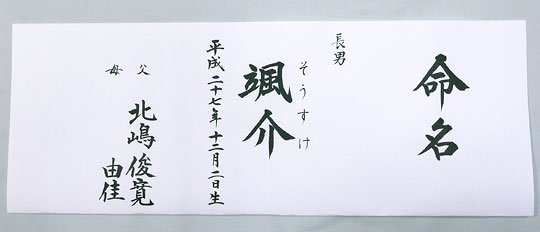 命名
長男
そうすけ
颯介
平成二十七年十二月二日生
父 北嶋俊寛
母 由佳